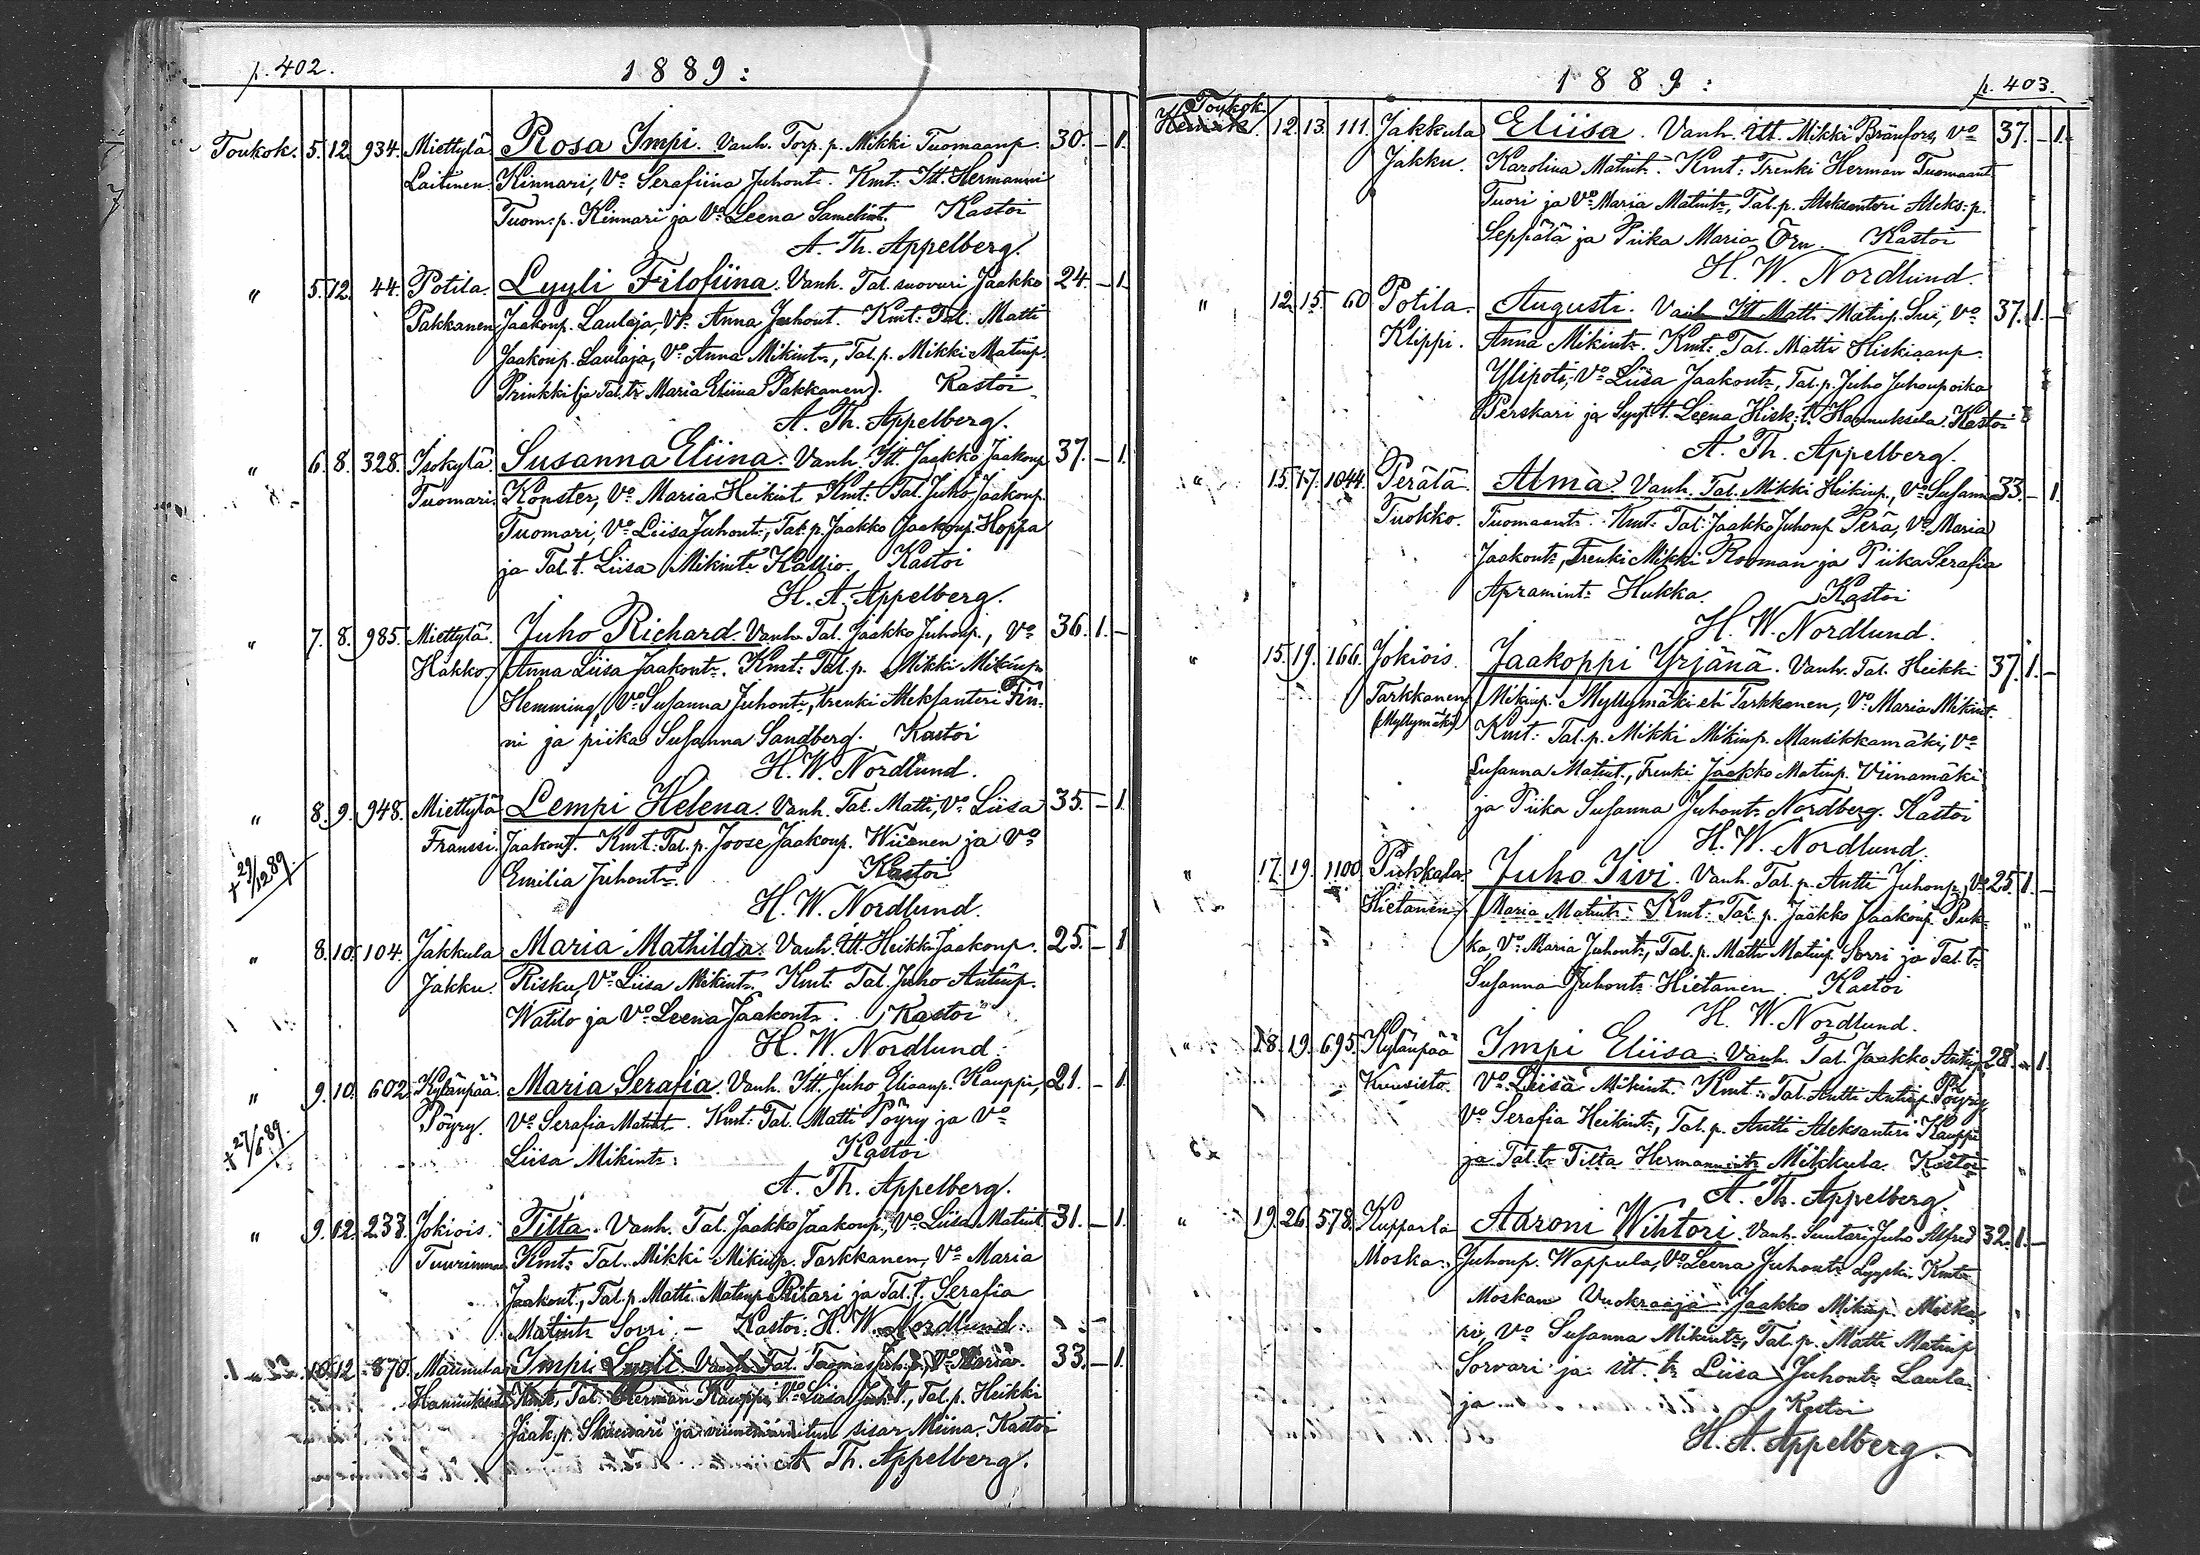 p. 402.
1889:
Toukok. 5. 12. 934. Miettylä Rosa Impi. Vanh. Torp. p. Mikki Tuomaanp. 30. – 1.
Laitinen. Kinnari, Vo Serafiina Juhont. Kmt: Itt. Hermanni
Tuom: p. Kinnari ja Vo Leena Samelint. Kastoi
A. Th. Appelberg.
" 5. 12. 44. Potila. Lyyli Filofiina. Vanh. Tal. suovuri Jaakko 24. – 1.
Pakkanen Jaakonp. Laulaja, Vo Anna Juhont. Kmt: Tal. Matti
Jaakonp. Laulaja, Vo Anna Mikintr, Tal. p. Mikki Matinp.
Prinkki (ja Tal. tr Maria Eliina Pakkanen). Kastoi
A. Th. Appelberg.
" 6. 8. 328. Isokylä. Susanna Eliina. Vanh. Itt. Jaakko Jaakonp 37. – 1.
Tuomari. Konster, Vo Maria Heikint. Kmt: Tal. Juho Jaakonp.
Tuomari, Vo Liisa Juhontr, Tal. p. Jaakko Jaakonp. Hoppa
ja Tal. t. Liisa Mikintr Kallio. Kastoi
H. A. Appelberg.
" 7. 8. 985. Miettylä. Juho Richard. Vanh. Tal. Jaakko Juhonp., Vo 36. 1. –
Hakko. Anna Liisa Jaakontr. Kmt: Tal. p. Mikki Mikinp
Hemming, Vo Susanna Juhontr, trenki Aleksanteri Fin-
ni ja piika Susanna Sandberg. Kastoi
H. W. Nordlund.
" 8. 9. 948. Miettylä Lempi Helena. Vanh. Tal. Matti, Vo Liisa 35. – 1.
Franssi. Jaakont. Kmt: Tal. p. Joose Jaakonp. Wiienen ja Vo
+ 29/12 89. Emilia Juhontr. Kastoi
H. W. Nordlund.
" 8. 10. 104. Jakkula Maria Mathilda. Vanh. Itt. Heikki Jaakonp. 25. – 1
Jakku. Risku, Vo Liisa Mikintr. Kmt: Tal. Juho Antinp.
Watilo ja Vo Leena Jaakontr. Kastoi
H. W. Nordlund.
" 9. 10. 602. Kylänpää. Maria Serafia. Vanh. Itt. Juho Eliaanp. Kauppi, 21. – 1
Pöyry. Vo Serafia Matint. Kmt: Tal. Matti Pöyry ja Vo
+ 27/6 89. Liisa Mikintr. Kastoi
A. Th. Appelberg.
" 9. 12. 233. Jokiois. Tilta. Vanh. Tal. Jaakko Jaakonp., Vo Liisa Matint. 31. – 1.
Tuurinmaa Kmt: Tal. Mikki Mikinp. Tarkkanen, Vo Maria
Jaakont., Tal. p. Matti Matinp. Ritari ja Tal. t. Serafia
Matintr Sorri. – Kastoi H. W. Nordlund.
10. 12. 870. Mannula Impi Lyyli. Vanh. Tal. Tuomas Juh. p., Vo Maria. 33. – 1.
Kmt. Tal. Herman Kauppi, Vo Liisa Juh. t., Tal. p. Heikki
Jaak. p. ja viimemainitun sisar Miina. Kastoi
A Th. Appelberg.
1889:
p. 403.
Toukok.
12. 13. 111. Jakkula Eliisa. Vanh. Itt. Mikki Bränfors, Vo 37. – 1.
Jakku. Karolina Matintr. Kmt: Trenki Herman Tuomaanp
Tuori ja Vo Maria Matintr, Tal. p. Aleksanteri Aleks: p.
Seppälä ja Piika Maria Örn. Kastoi
H. W. Nordlund.
" 12. 15. 60 Potila. Augusti. Vanh. Itt Matti Matinp. Sui, Vo 37. 1. –
Klippi. Anna Mikintr. Kmt: Tal. Matti Hiskiaanp.
Ylipoti, Vo Liisa Jaakontr, Tal. p. Juho Juhonpoika
Perskari ja Syyt. t. Leena Hisk: t. Hannuksela. Kastoi
A. Th. Appelberg.
" 15. 17. 1044. Perälä. Alma. Vanh. Tal. Mikki Heikinp., Vo Susanna 33. – 1.
Tuokko. Tuomaantr. Kmt: Tal. Jaakko Juhonp. Perä, Vo Maria
Jaakontr, Trenki Mikki Rooman ja Piika Serafia
Apramintr Hukka. Kastoi
H. W. Nordlund.
" 15. 19. 166. Jokiois. Jaakoppi Yrjänä. Vanh. Tal. Heikki 37. 1. –
Tarkkanen Mikinp. Myllymäki eli Tarkkanen, Vo Maria Mikint.
(Myllymäki) Kmt: Tal. p. Mikki Mikinp. Mansikkamäki, Vo
Susanna Matint., Trenki Jaakko Matinp. Viinamäki
ja Piika Susanna Juhontr Nordberg. Kastoi
H. W. Nordlund.
" 17. 19. 1100. Pukkala. Juho Iivi. Vanh. Tal. p. Antti Juhonp., Vo 25. 1. –
Hietanen. Maria Matintr. Kmt: Tal. p. Jaakko Jaakonp. Puk-
ka Vo Maria Juhontr, Tal. p. Matti Matinp. Sorri ja Tal. tr
Susanna Juhontr Hietanen. Kastoi
H. W. Nordlund.
18. 19. 695. Kylänpää Impi Eliisa. Vanh. Tal. Jaakko Antinp. 28. – 1.
Kuusisto. Vo Liisa Mikint. Kmt: Tal. Antti Antinp. Pöyry,
Vo Serafia Heikintr, Tal. p. Antti Aleksanteri Kauppi
ja Tal. tr Tilta Hermannintr Mikkula. Kastoi
A. Th. Appelberg.
" 19. 26. 578. Kupparla Aaroni Wihtori. Vanh. Suutari Juho Alfred 32. 1. –
Moska. Juhonp. Wappula, Vo Leena Juhontr Lyyski. Kmt:
Moskan Vuokraaja Jaakko Mikinp. Meska-
ri, Vo Susanna Mikintr, Tal. p. Matti Matinp.
Sorvari ja itt. tr Liisa Juhontr Laula-
ja Kastoi
H. A. Appelberg.